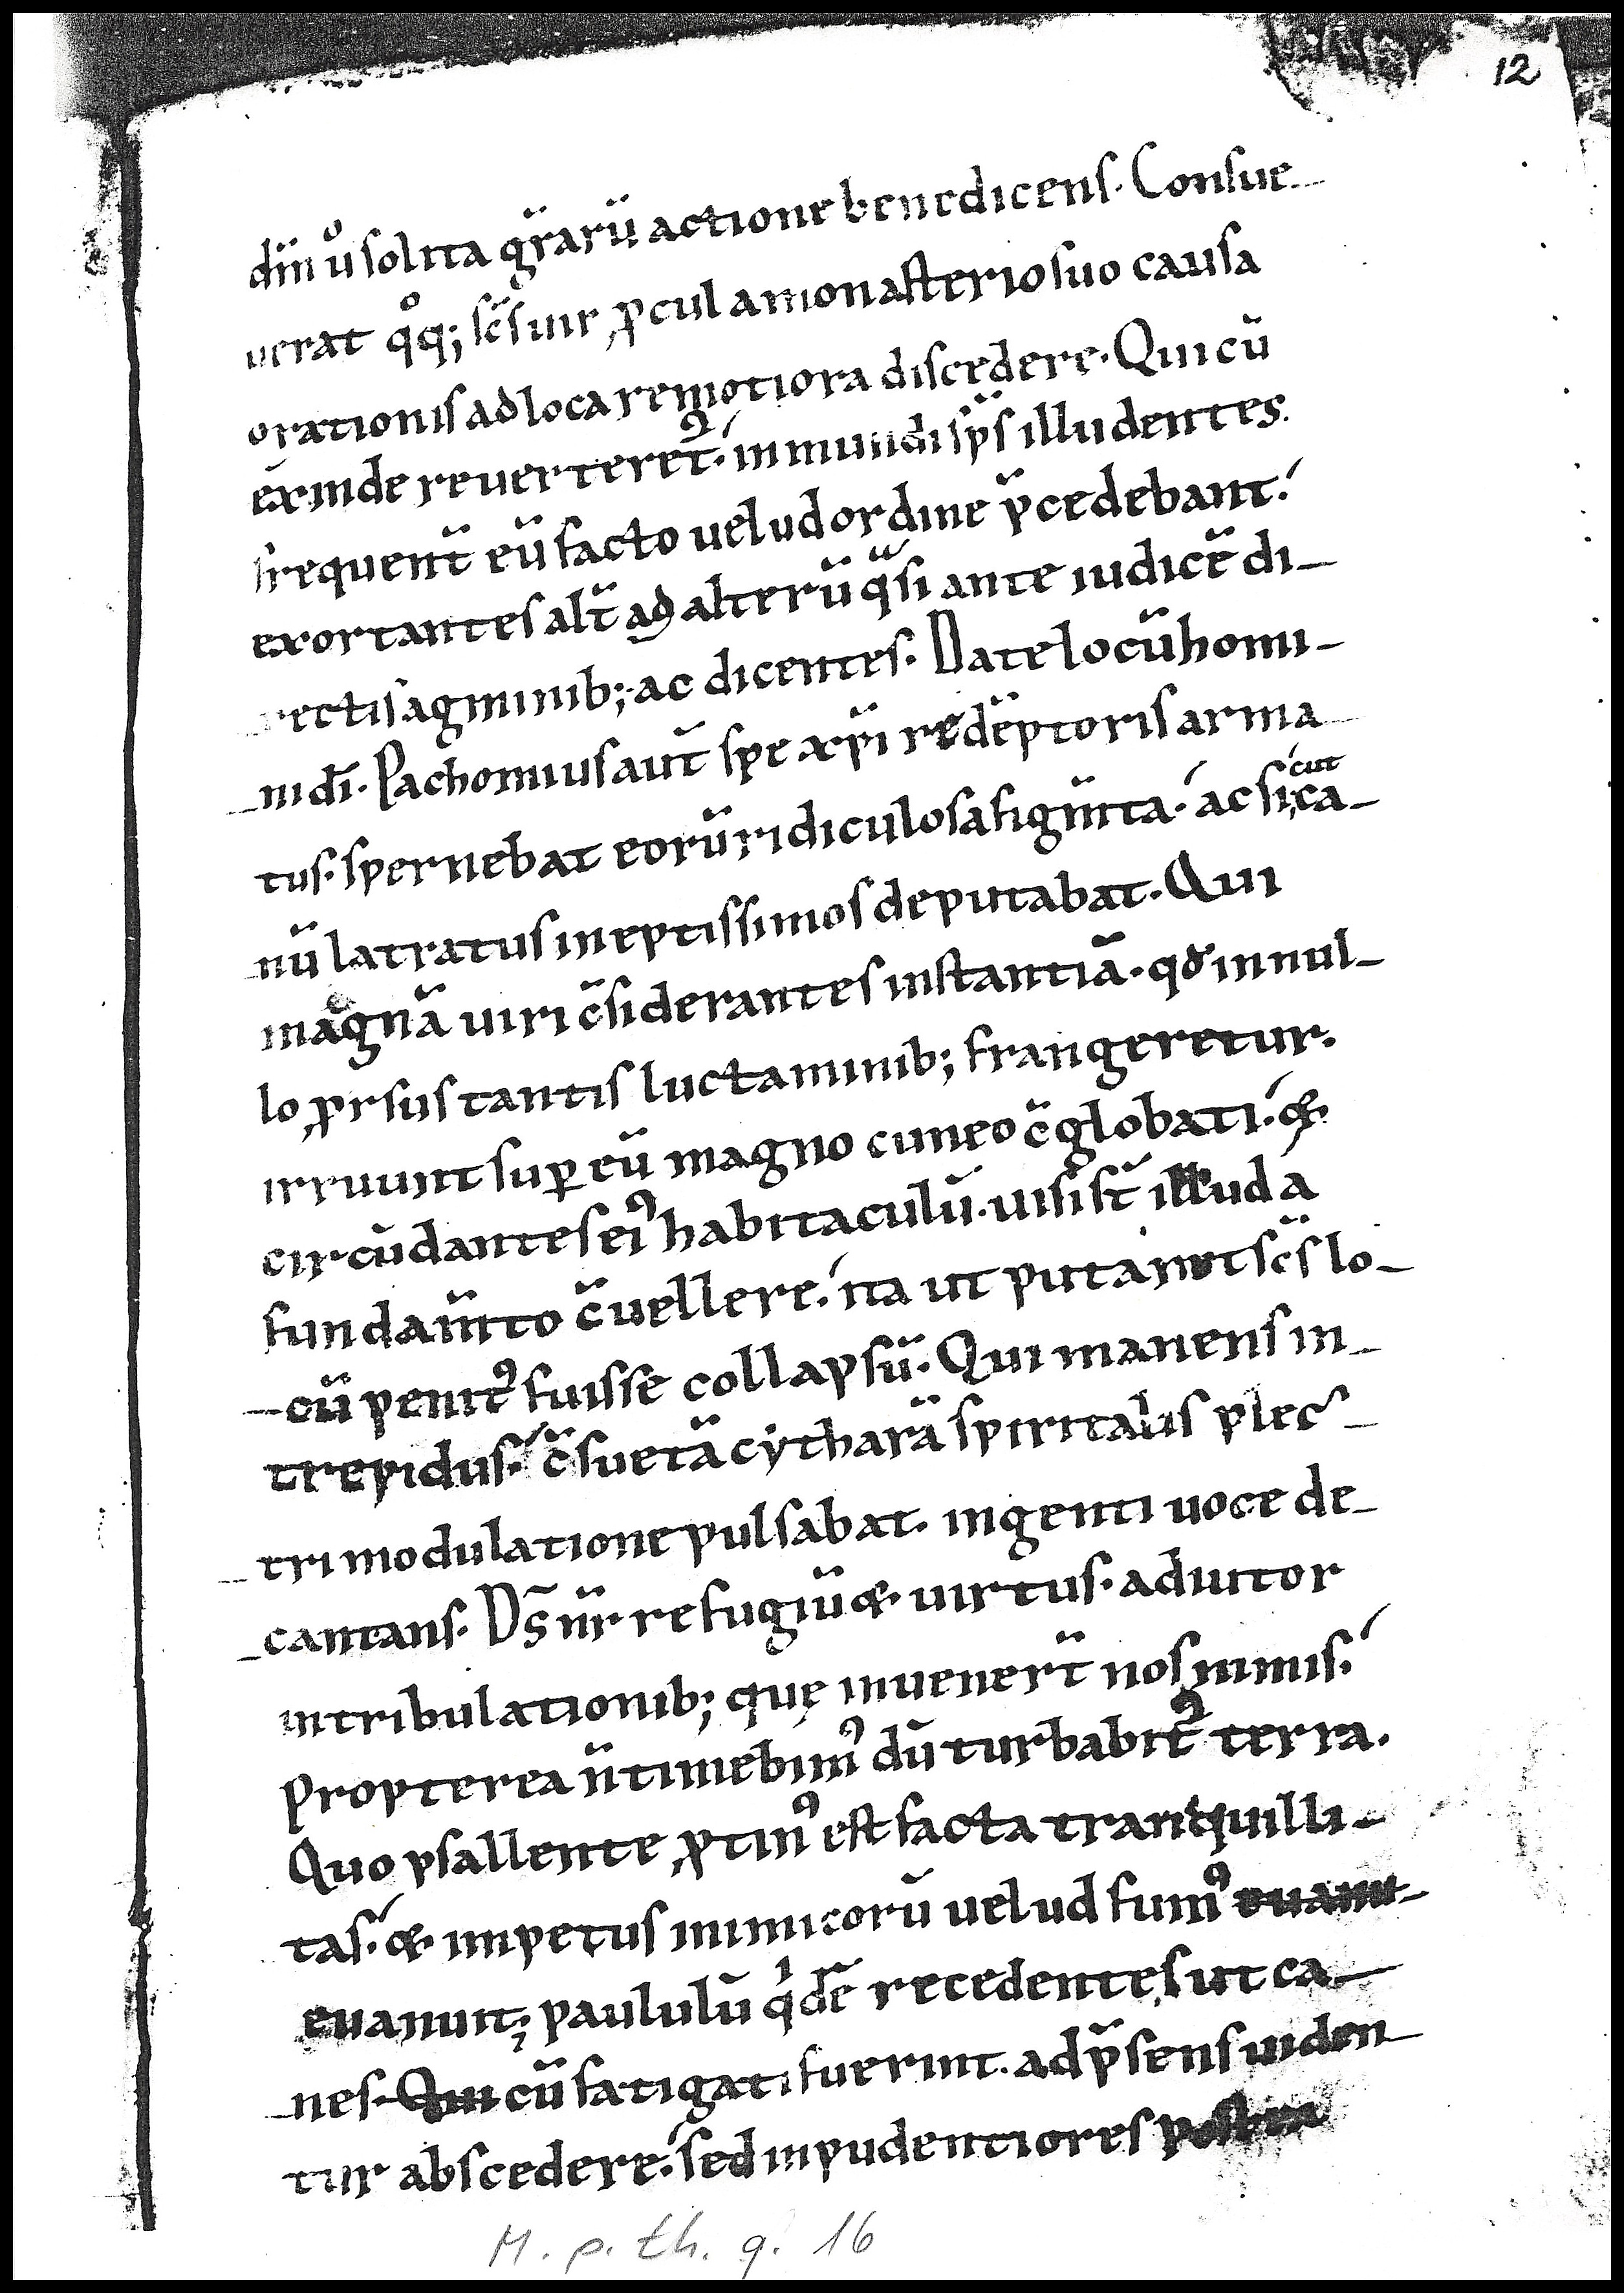 12
dn̄i ůsolita gr̄arū actione benedicens. Consue-
uerat qͦq; sc̄s uir ꝓcul amonasterio suo causa
orationis ad loca remotiora discedere. Qui cū
exinde reuerteret᷑. inmundi sp̄s illudentes.
frequent̄ eū facto uelud ordine p̄cedebant.
exortantes alt̄ ad alterū qᵃsi ante iudicē di-
rectis agminib; ac dicentes. Date locū homi-
ni dī. Pachomius aut̄ spe xp̄i redēptoris arma
tus. spernebat eorū ridiculosa figm̄ta. ac sicut ca-
nū latratus ineptissimos deputabat. Qui
magnā uiri c̄siderantes instantiā. qđ in nul-
lo ꝓrsus tantis luctaminib; frangeretur.
irruunt suꝑ eū magno cuneo c̄globati. &
circūdantes eiꝰ habitaculū. uisi st̄ illud a
fundam̄to c̄uellere. ita ut putaret sc̄s lo-
cū penitꝰ fuisse collapsū. Qui manens in-
trepidus. c̄suetā cytharā spiritalis plec-
tri modulatione pulsabat. ingenti uoce de-
cantans. Ds̄ nr̄ refugiū & uirtus. adiutor
in tribulationib; quę inuenert̄ nos nimis.
Propterea n̄ timebimꝰ dū turbabit᷑ terra.
Quo psallente ꝓtinꝰ est facta tranquilli-
tas. & impetus inimicorū uelud fumꝰ euanu-
euanuit; paululū qⁱdē recedentes ut ca-
nes. Qui cū fatigati fuerint. ad p̄sens uiden-
tur abscedere. sed inpudentiores postea
M. p. th. q. 16